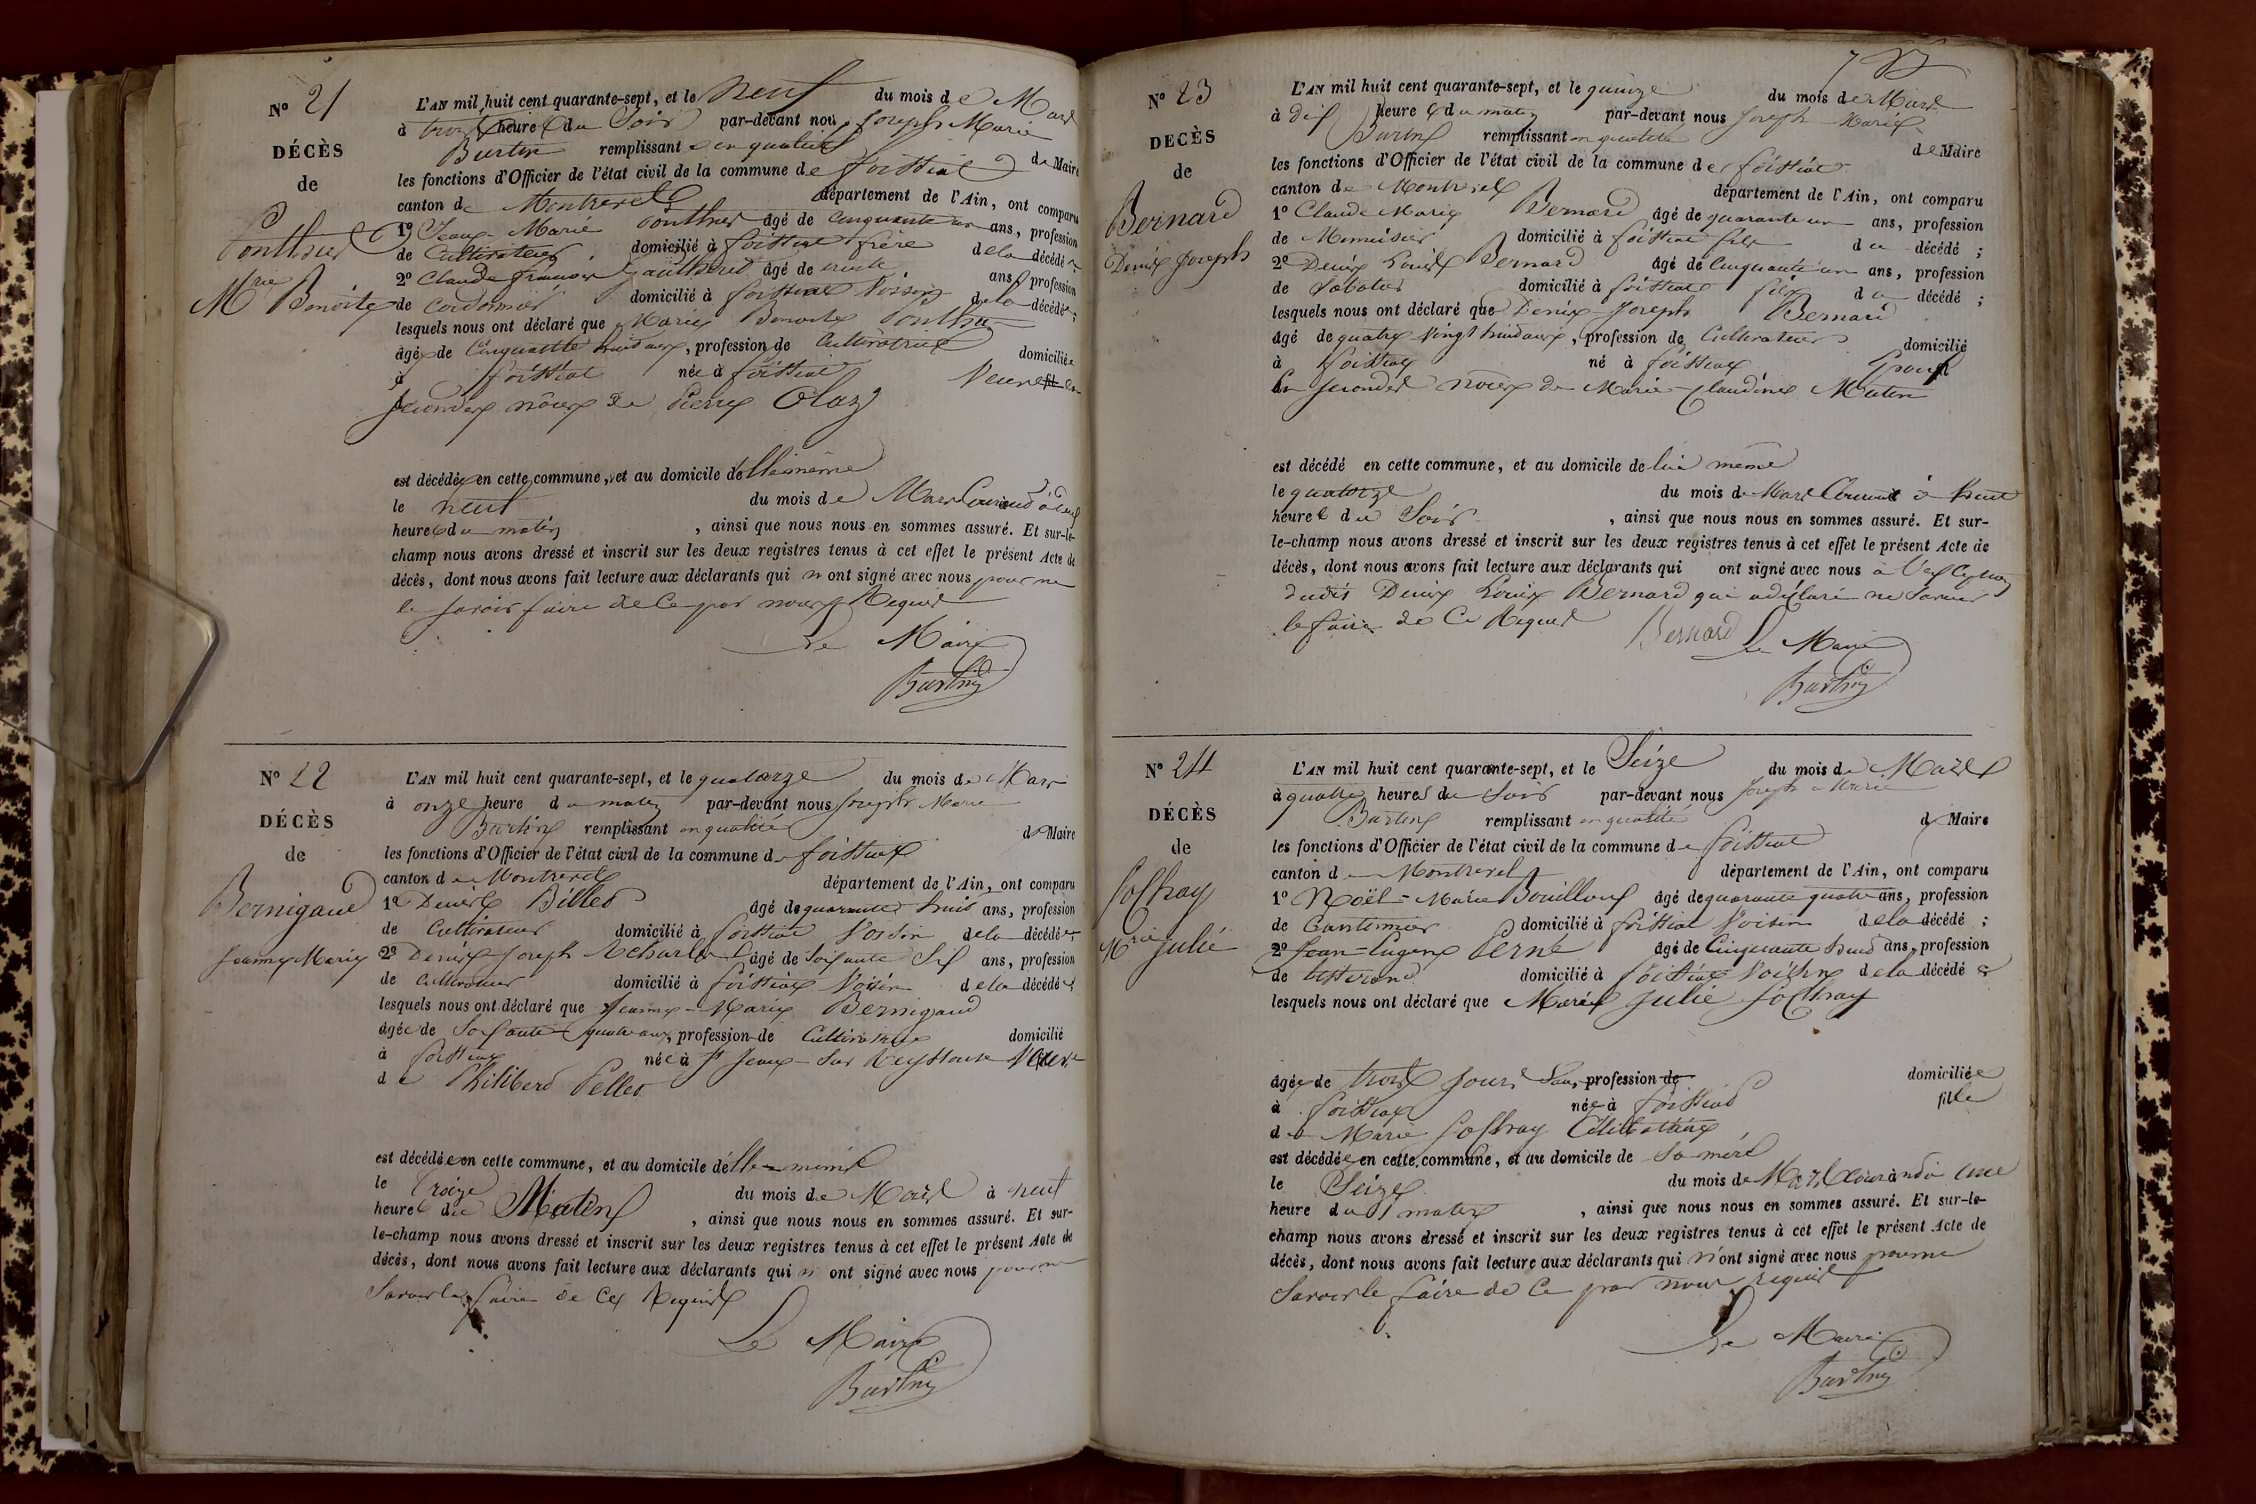 N° 21
DÉCÈS
de
Ponthus
Mrie Benoite
L'AN mil huit cent quarante-sept, et le neuf du mois de Mars
à trois heures du Soir par-devant nous Joseph Marie
Burtin remplissant en qualité de Maire
les fonctions d'Officier de l'état civil de la commune de foissiat
canton de Montrevel département de l'Ain, ont comparu
1° Jean-Marie Ponthus âgé de cinquante un ans, profession
de Cultivateur domicilié à foissiat frère de la décédée,
2° Claude françois âgé de trente ans, profession
de Cordonnier domicilié à foissiat Voisin de la décédée;
lesquels nous ont déclaré que Marie Benoite Ponthus
âgée de Cinquante huit ans, profession de Cultivatrice domiciliée
à foissiat née à foissiat Veuve en
secondes nôces de Pierre Claz
est décédée en cette commune, et au domicile d'Elle même
le neuf du mois de Mars Courant à
heures du matin, ainsi que nous nous en sommes assuré. Et sur-le-
champ nous avons dressé et inscrit sur les deux registres tenus à cet effet le présent Acte de
décès, dont nous avons fait lecture aux déclarants qui n'ont signé avec nous pour ne
le savoir faire de Ce par nous Requis
Le Maire
Burtin
N° 22
DÉCÈS
de
Bernigaud
Jeanne Marie
L'AN mil huit cent quarante-sept, et le quatorze du mois de Mars
à onze heure du matin par-devant nous Joseph Marie
Burtin remplissant en qualité de Maire
les fonctions d'Officier de l'état civil de la commune de foissiat
canton de Montrevel département de l'Ain, ont comparu
1° Denis Billet âgé de quarante huit ans, profession
de Cultivateur domicilié à foissiat Voisin de la décédée;
2° Denis Joseph âgé de Soixante Six ans, profession
de Cultivateur domicilié à foissiat Voisin de la décédée;
lesquels nous ont déclaré que Jeanne-Marie Bernigaud
âgée de Soixante quatre ans, profession de Cultivatrice domicilié
à foissiat née à St Jean-Sur Reyssouze Veuve
de Philibert Pellet
est décédée en cette commune, et au domicile d'Elle-même
le Treize du mois de Mars à neuf
heures du Matin, ainsi que nous nous en sommes assuré. Et sur-
le-champ nous avons dressé et inscrit sur les deux registres tenus à cet effet le présent Acte de
décès, dont nous avons fait lecture aux déclarants qui n'ont signé avec nous pour ne
Savoir le faire de Ce Requis
Le Maire
Burtin
N° 23
DÉCÈS
de
Bernard
Denis Joseph
L'AN mil huit cent quarante-sept, et le quinze du mois de Mars
à dix heures du matin par-devant nous Joseph Marie
Burtin remplissant en qualité de Maire
les fonctions d'Officier de l'état civil de la commune de foissiat
canton de Montrevel département de l'Ain, ont comparu
1° Claude Marie Bernard âgé de quarante un ans, profession
de Menuisier domicilié à foissiat fils du décédé;
2° Denis Louis Bernard âgé de Cinquante un ans, profession
de Sabotier domicilié à foissiat fils du décédé;
lesquels nous ont déclaré que Denis-Joseph Bernard
âgé de quatre Vingt huit ans, profession de Cultivateur domicilié
à foissiat né à foissiat Epoux
En secondes nôces de Marie-Claudine Mutin
est décédé en cette commune, et au domicile de lui même
le quatorze du mois de Mars Courant à huit
heures du Soir, ainsi que nous nous en sommes assuré. Et sur-
le-champ nous avons dressé et inscrit sur les deux registres tenus à cet effet le présent Acte de
décès, dont nous avons fait lecture aux déclarants qui ont signé avec nous à l'exception
dudit Denis Louis Bernard qui a déclaré ne Savoir
le faire de Ce Requis Bernard Le Maire
Burtin
N° 24
DÉCÈS
de
Mrie Julie
L'AN mil huit cent quarante-sept, et le Seize du mois de Mars
à quatre heures du Soir par-devant nous Joseph Marie
Burtin remplissant en qualité de Maire
les fonctions d'Officier de l'état civil de la commune de foissiat
canton de Montrevel département de l'Ain, ont comparu
1° Noël-Marie Bouilloux âgé de quarante quatre ans, profession
de Cantonnier domicilié à foissiat Voisin de la décédé;
2° Jean-Eugène Perne âgé de Cinquante huit ans, profession
de Tisserand domicilié à foissiat Voisin de la décédé
lesquels nous ont déclaré que Marie Julie
âgée de trois Jours Sans profession de domiciliée
à foissiat née à foissiat fille
de Marie Célibataire
est décédée en cette commune, et au domicile de Sa mère
le Seize du mois de Mars Courant à une
heure du matin, ainsi que nous nous en sommes assuré. Et sur-le-
champ nous avons dressé et inscrit sur les deux registres tenus à cet effet le présent Acte de
décès, dont nous avons fait lecture aux déclarants qui n'ont signé avec nous pour ne
Savoir le faire de Ce par nous requis
Le Maire
Burtin